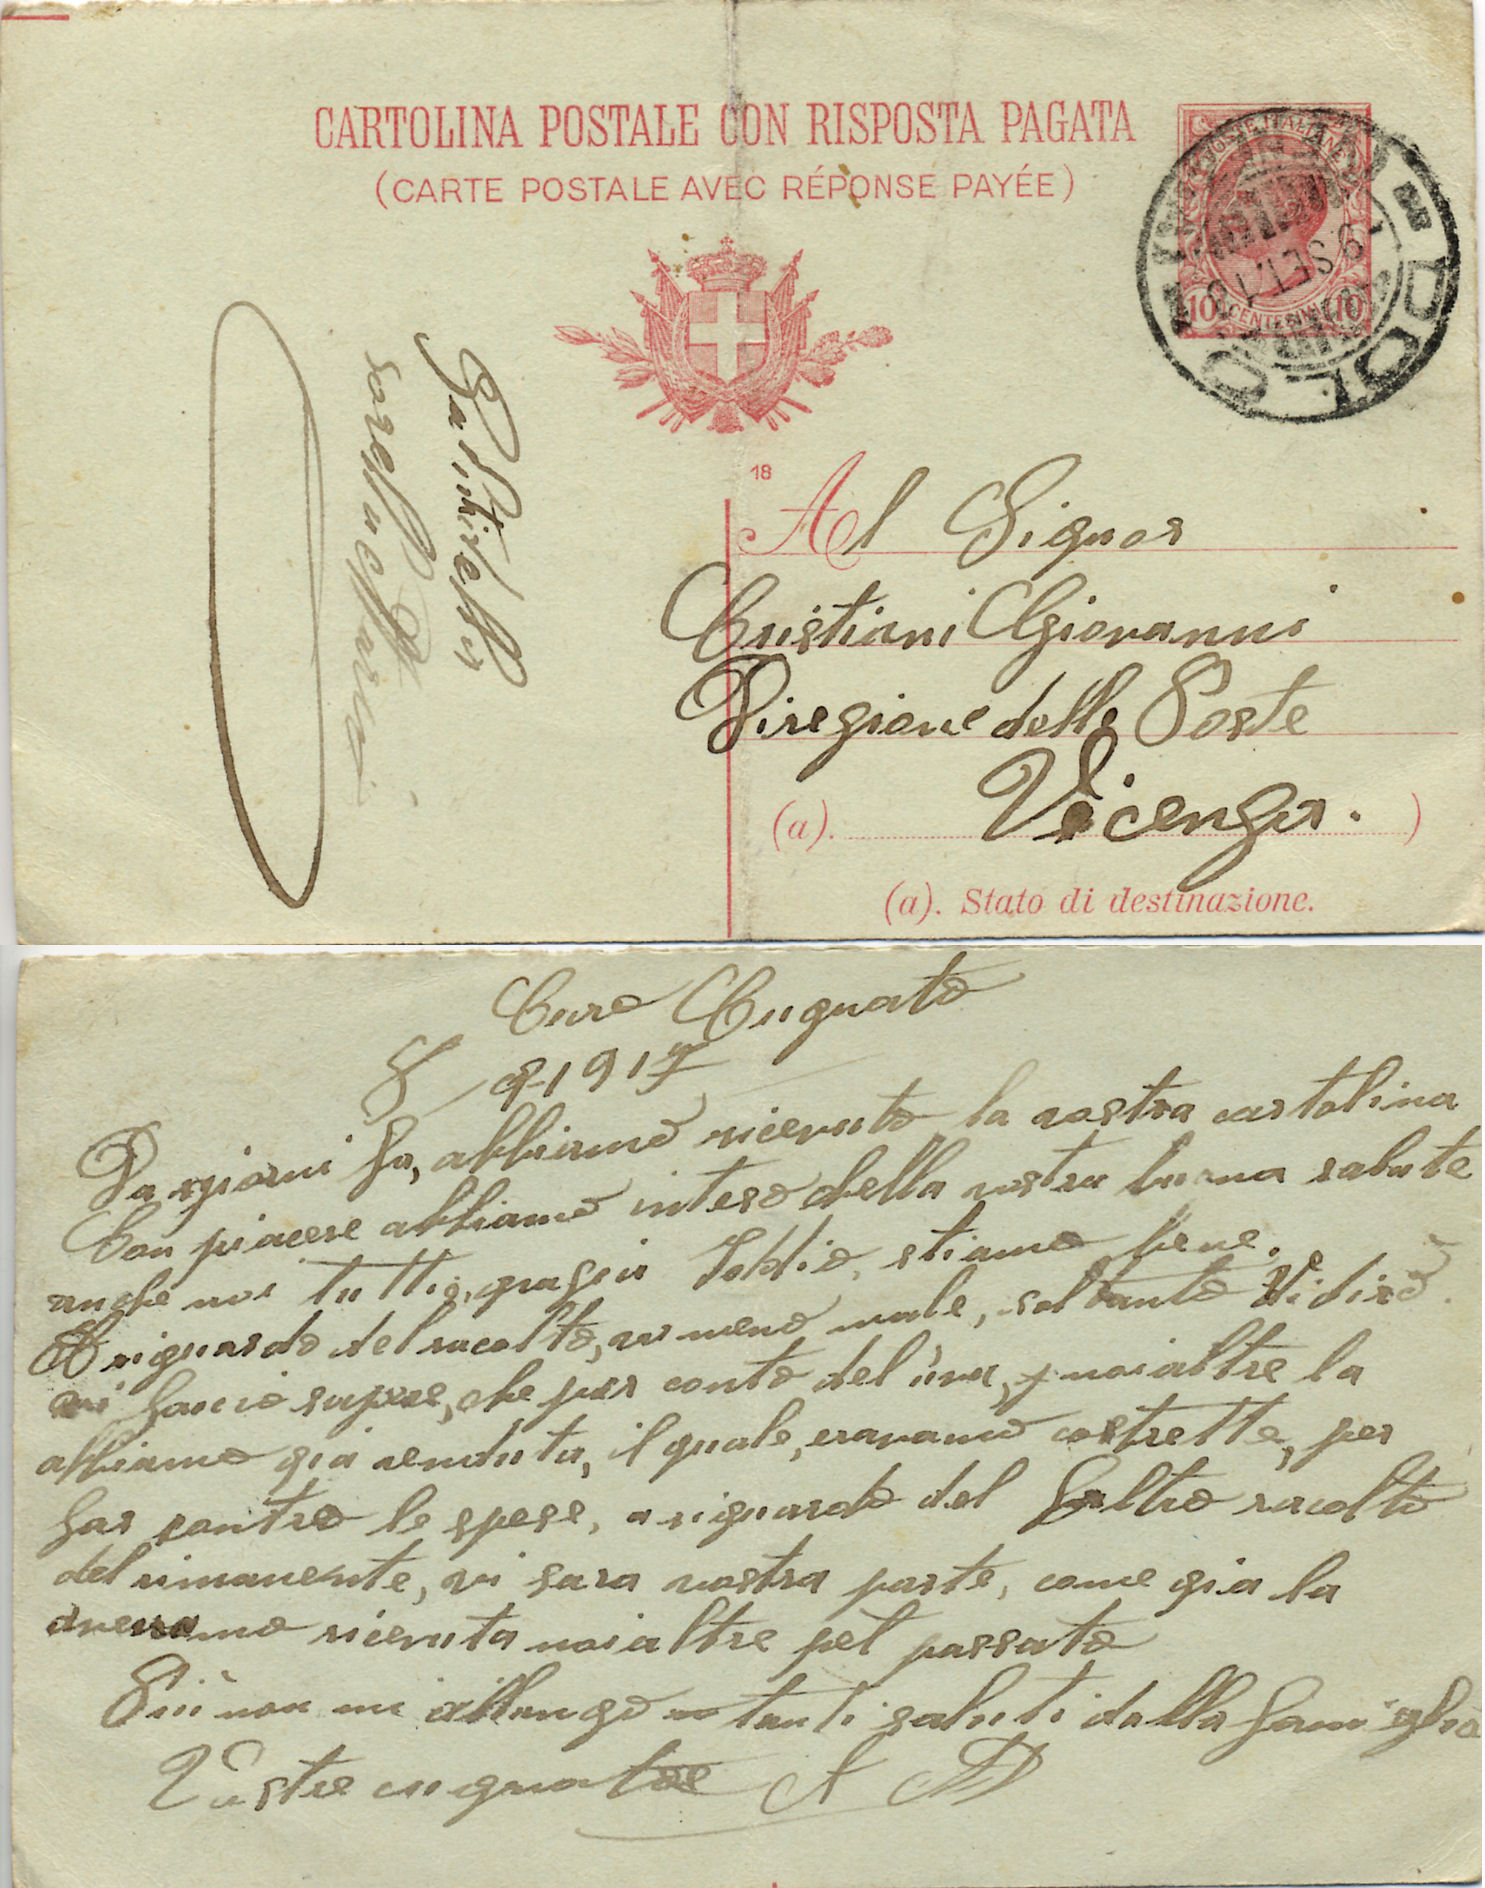 CARTOLINA POSTALE CON RISPOSTA PAGATA
(CARTE POSTALE AVEC RÉPONSE PAYÉE)
POSTE ITALIANE
10 CENTESIMI 10
DOLO
9 SET. 1
18
Al Signor
Cristiani Giovanni
Diregione delle Poste
(a). Vicenza. )
(a). Stato di destinazione.
Caro Cugnato
8/9-1917
Da giorni fa, abbiamo ricevuto la vostra cartolina
Con piacere abbiamo inteso della vostra buona salute
anche noi tutti, grazia Iddio, stiamo bene.
A riguardo del racolto, vi meno male, soltanto Vi dirò
vi faccio sapere, che per conto del'uva, noialtre la
abbiamo già venduta, il quale, eravamo costrette, per
far contro le spese, a riguardo del faltro racolto
del rimanente, vi sara vostra parte, come gia la
avevamo ricevuta noialtre pel passato
Più non mi allungo tanti saluti dalla famiglia
Vostre cugnate A D